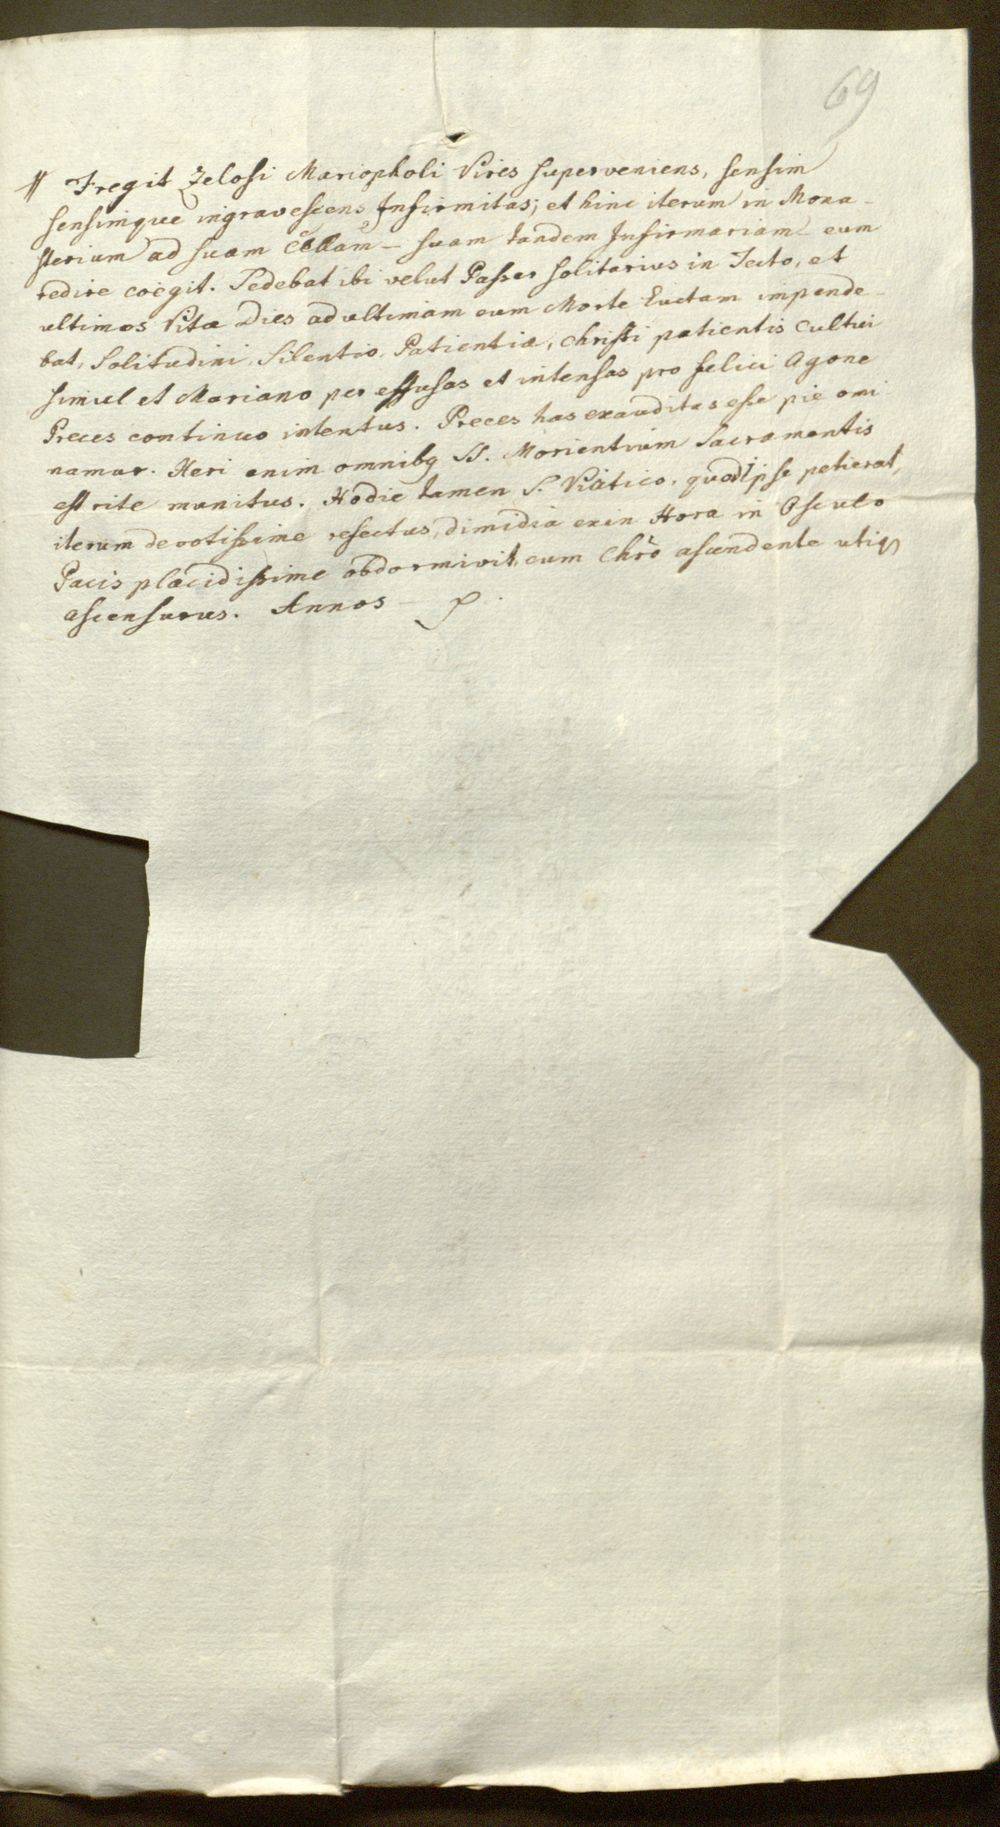 69
Fregit Zelosi Mariopholi Vires superveniens, sensim
sensimque ingravescens Infirmitas; et hinc iterum in Mona-
sterium ad suam Cellam – suam tandem Infirmariam eum
redire coëgit. Sedebat ibi velut Passer solitarius in Tecto, et
ultimos Vitæ Dies ad ultimam cum Morte Luctam impende-
bat, Solitudini, Silentio, Patientiæ, Christi patientis Cultui
simul et Mariano per effusas et intensas pro felici Agone
Preces continuo intentus. Preces has exauditas esse pie omi-
namur. Heri enim omnibq SS. Morientium Sacramentis
est rite munitus. Hodie tamen S. Viatico, quod ipse petierat,
iterum devotissime refectus, dimidia exin Hora in Osculo
Pacis placidissime obdormivit, cum Chro ascendente utiq
ascensurus. Annos –